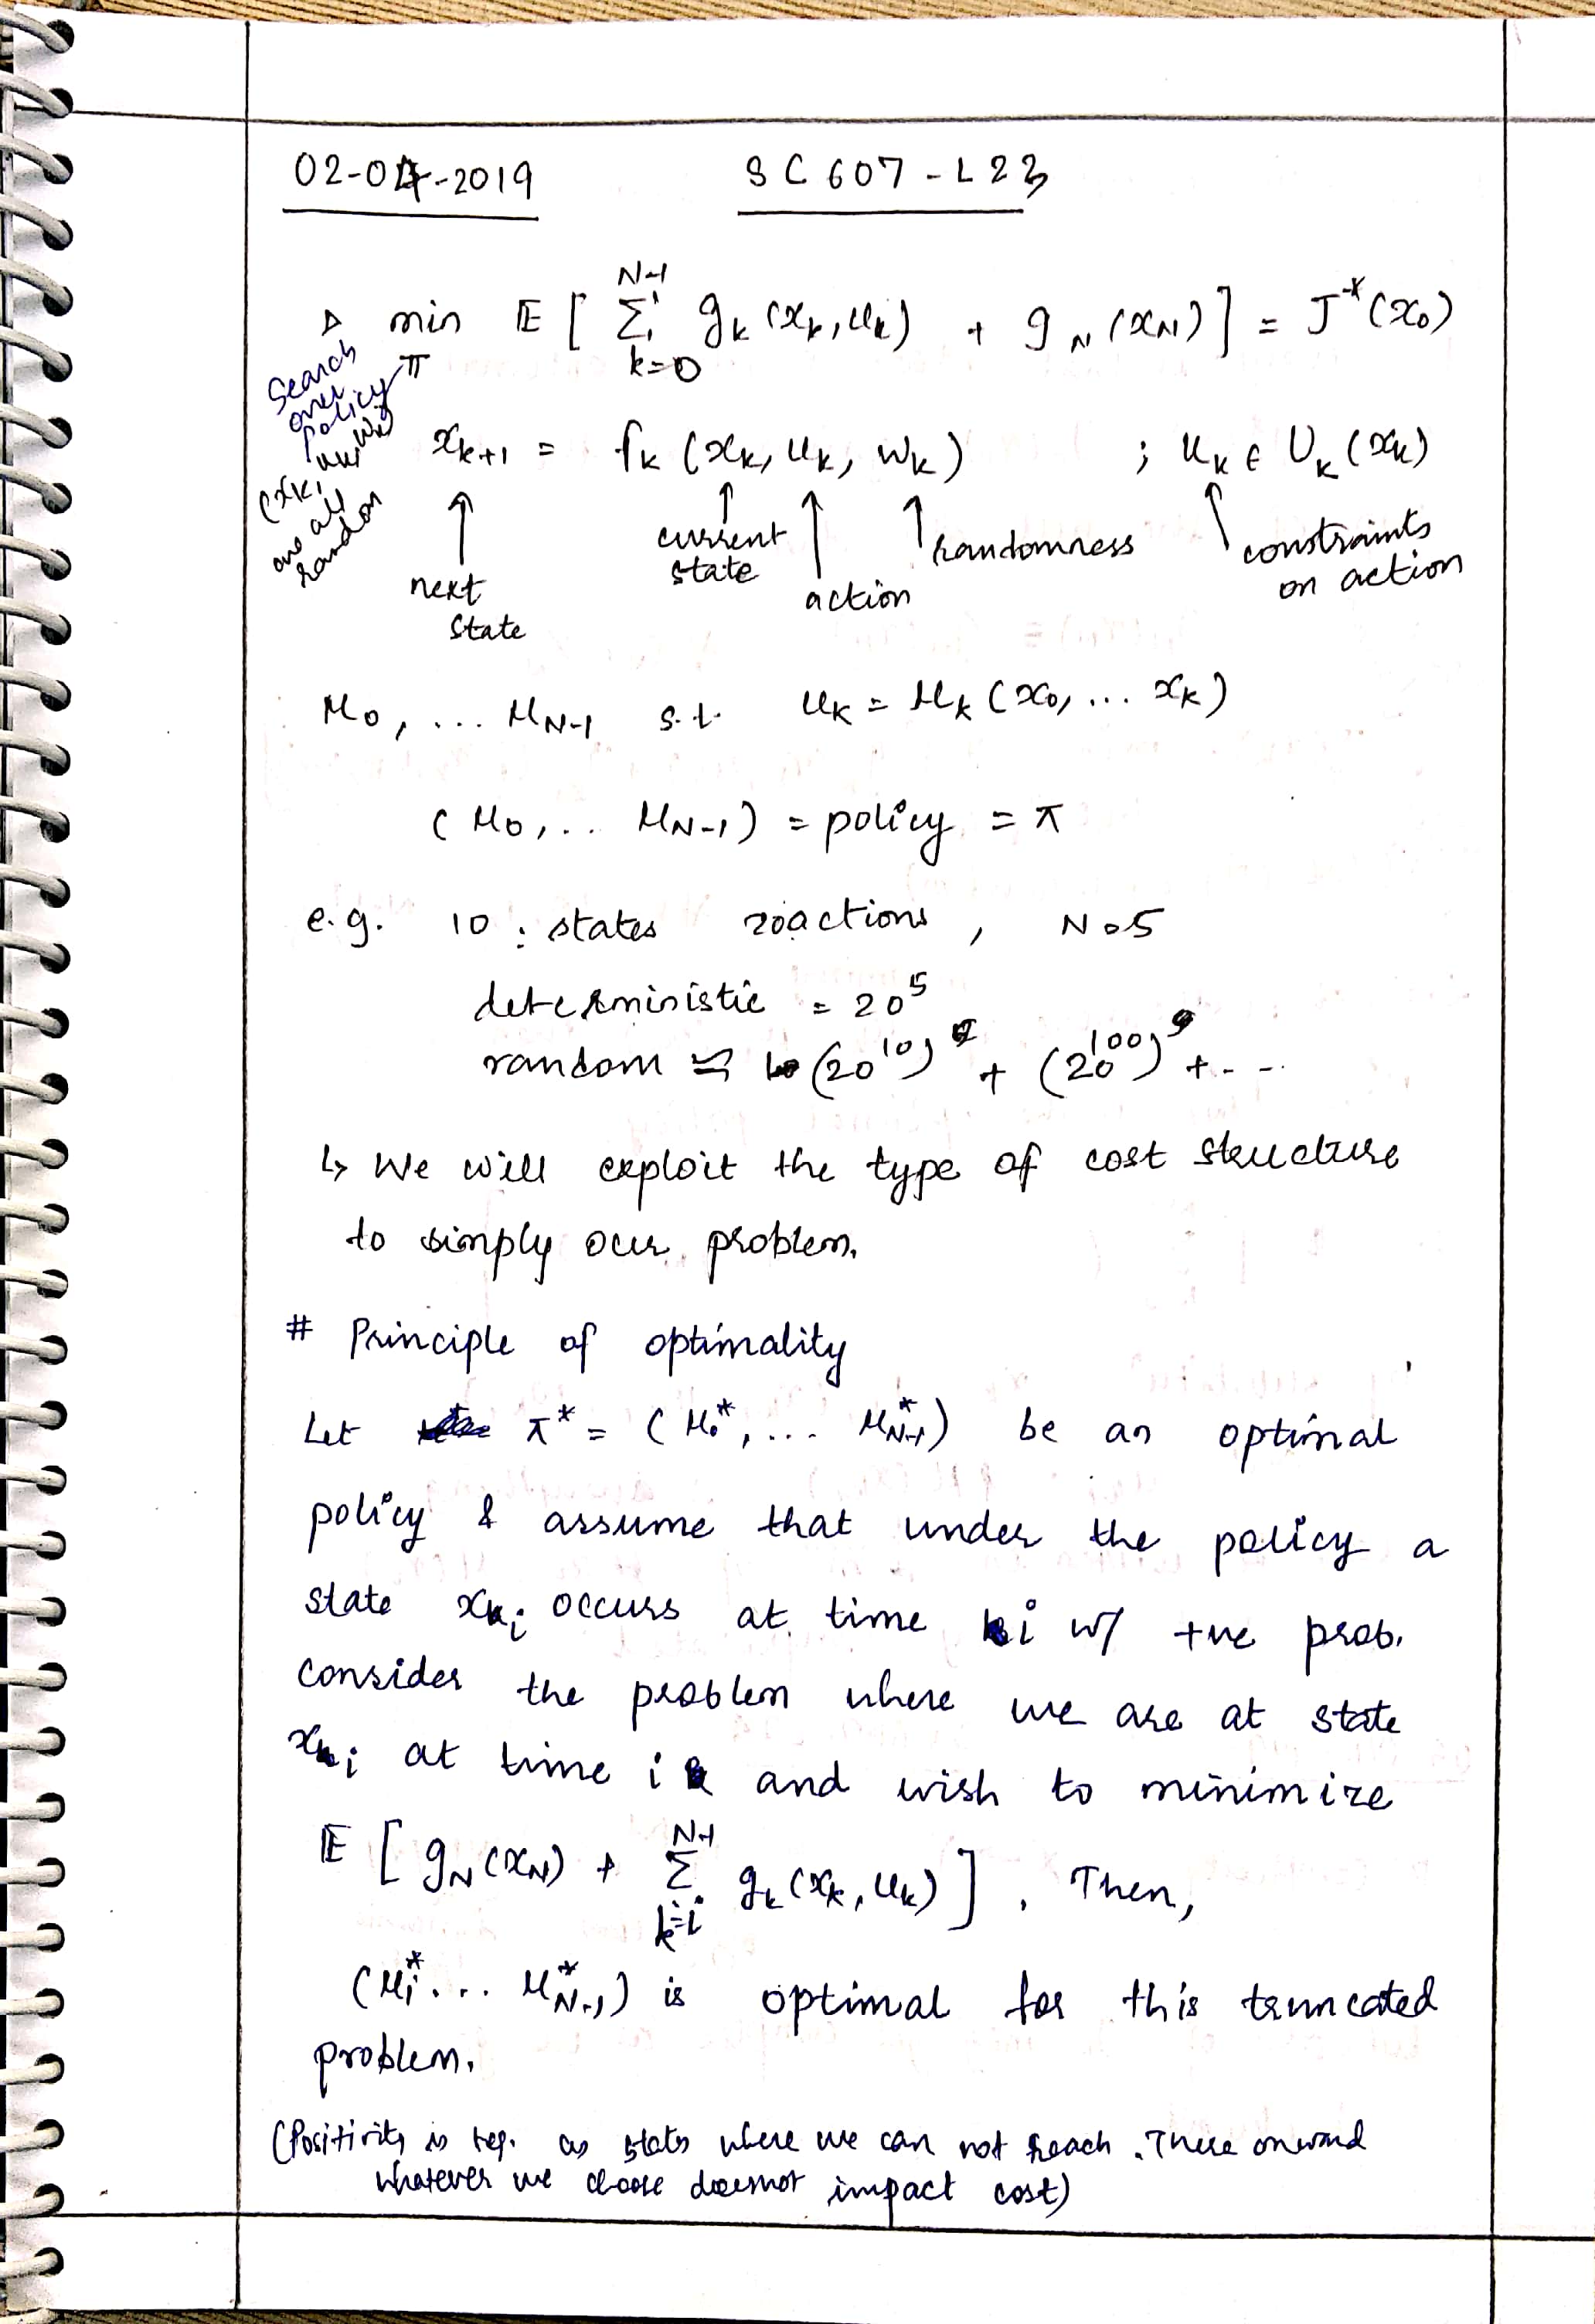 02-04-2019 SC 607 - L23
▷ min_π E [ Σ_{k=0}^{N-1} g_k (x_k, u_k) + g_N (x_N) ] = J*(x_0)
Search
over
policy
(x_k, u_k, w_k)
are all
random
x_{k+1} = f_k (x_k, u_k, w_k) ; u_k ∈ U_k (x_k)
next
state
current
state
action
randomness
constraints
on action
μ_0, ... μ_{N-1} s.t. u_k = μ_k (x_0, ... x_k)
(μ_0, .. μ_{N-1}) = policy = π
e.g. 10 : states 20 actions , N=5
deterministic = 20^5
random ≒ (20^{10}) + (20^{100})^9 + ...
↳ We will exploit the type of cost structure
to simply our problem.
# Principle of optimality
Let π* = (μ_0*, ... μ_{N-1}*) be an optimal
policy & assume that under the policy a
state x_i occurs at time i w/ +ve prob.
consider the problem where we are at state
x_i at time i and wish to minimize
E [ g_N(x_N) + Σ_{k=i}^{N-1} g_k (x_k, u_k) ] . Then,
(μ_i* ... μ_{N-1}*) is optimal for this truncated
problem.
(Positivity is req. as states where we can not reach . There onward
whatever we choose doesnot impact cost)